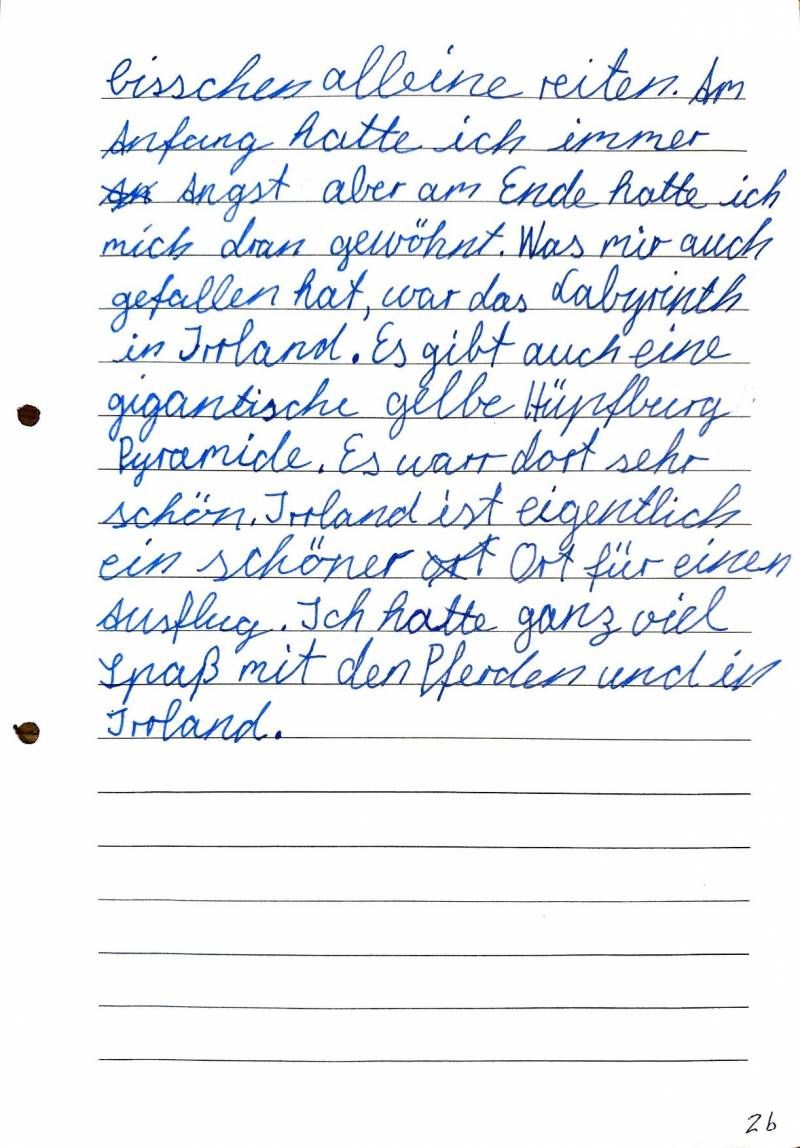 bisschen alleine reiten. Am
Anfang hatte ich immer
Angst aber am Ende hatte ich
mich dran gewöhnt. Was mir auch
gefallen hat, war das Labyrinth
in Irrland. Es gibt auch eine
gigantische gelbe Hüpfburg
Pyramide. Es warr dort sehr
schön. Irrland ist eigentlich
ein schöner Ort für einen
Ausflug. Ich hatte ganz viel
Spaß mit den Pferden und in
Irrland.
2b